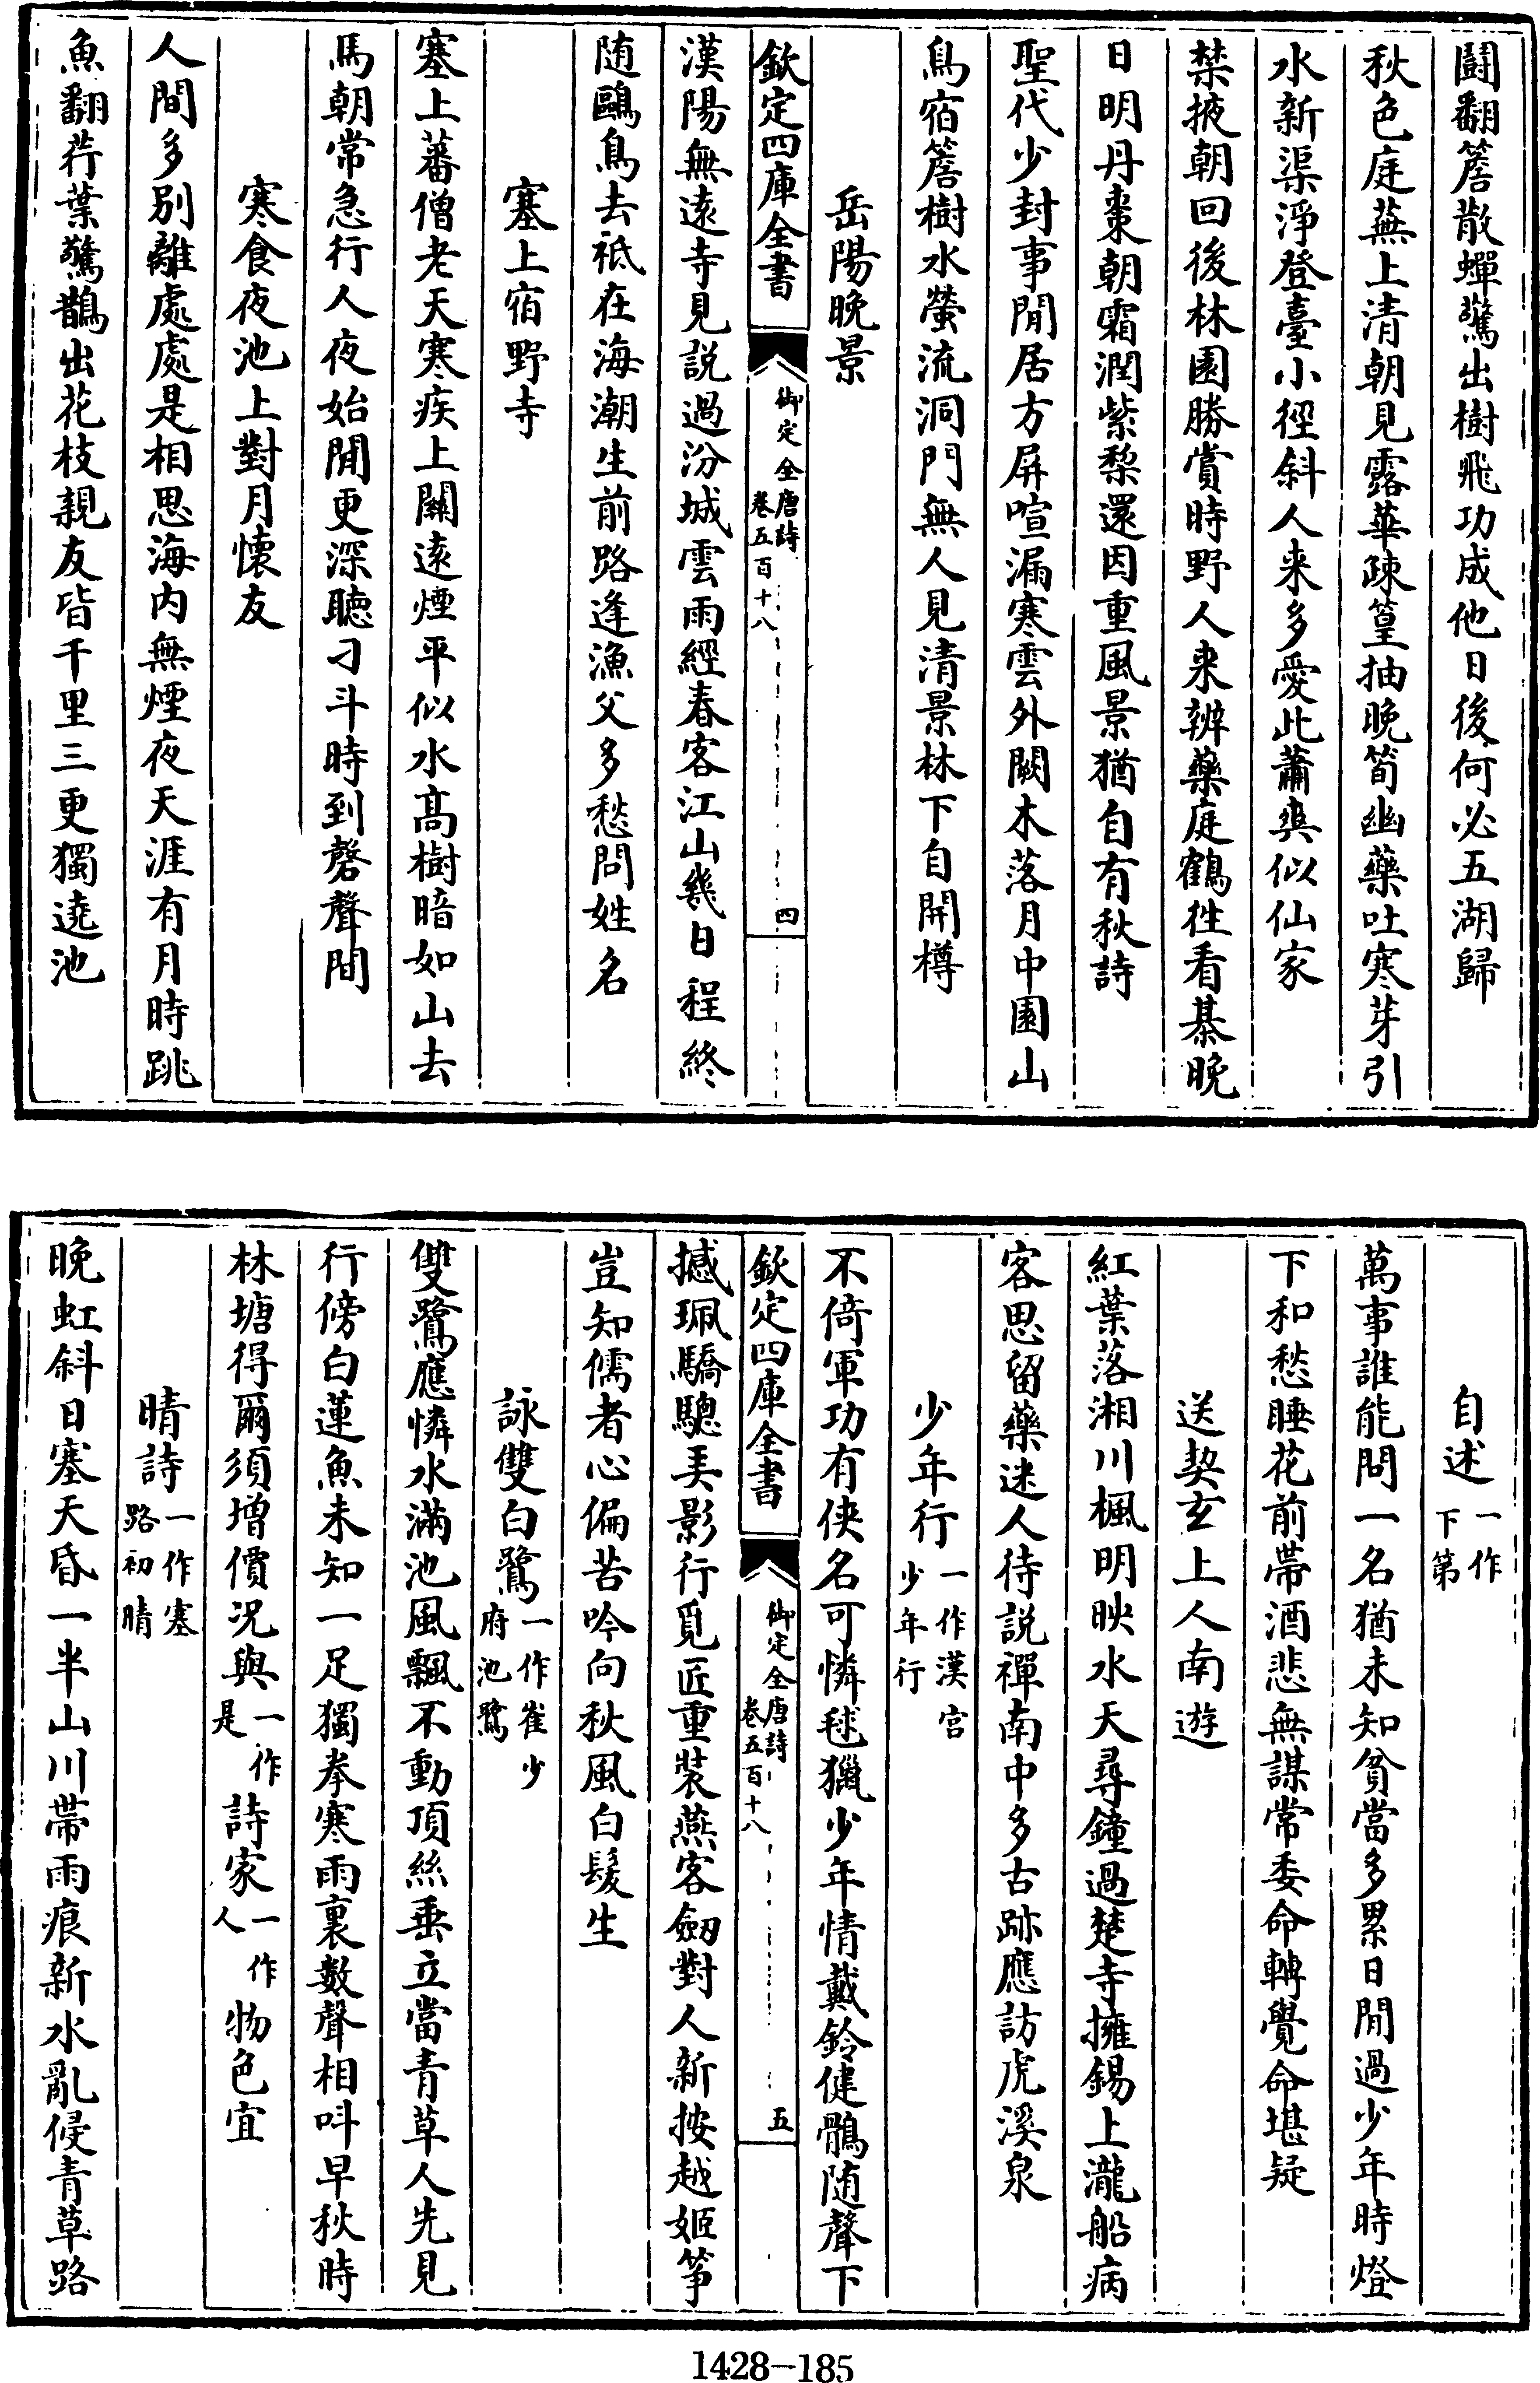 鬭翻簷散蟬驚出樹飛功成他日後何必五湖歸
秋色庭蕪上清朝見露華疎篁抽晚筍幽藥吐寒芽引
水新渠淨登臺小徑斜人来多愛此蕭爽似仙家
禁掖朝回後林園勝賞時野人来辨藥庭鶴往看棊晚
日明丹棗朝霜潤紫梨還因重風景猶自有秋詩
聖代少封事閒居方屏喧漏寒雲外闕木落月中園山
鳥宿簷樹水螢流洞門無人見清景林下自開樽
岳陽晚景
欽定四庫全書
御定全唐詩
卷五百十八
四
漢陽無逺寺見説過汾城雲雨經春客江山幾日程終
随鷗鳥去祇在海潮生前路逢漁父多愁問姓名
塞上宿野寺
塞上蕃僧老天寒疾上關逺煙平似水髙樹暗如山去
馬朝常急行人夜始閒更深聽刁斗時到磬聲間
寒食夜池上對月懷友
人間多别離處處是相思海内無煙夜天涯有月時跳
魚翻荇葉驚鵲出花枝親友皆千里三更獨遶池
自述一作下第
萬事誰能問一名猶未知貧當多累日閒過少年時燈
下和愁睡花前帶酒悲無謀常委命轉覺命堪疑
送契玄上人南遊
紅葉落湘川楓明映水天尋鐘過楚寺擁錫上瀧船病
客思留藥迷人待説禪南中多古跡應訪虎溪泉
少年行一作漢宫少年行
不倚軍功有俠名可憐毬獵少年情戴鈴健鶻随聲下
欽定四庫全書
御定全唐詩
卷五百十八
五
撼珮驕驄弄影行覓匠重裝燕客劒對人新按越姬箏
豈知儒者心偏苦吟向秋風白髮生
詠雙白鷺一作崔少府池鷺
雙鷺應憐水滿池風飄不動頂絲垂立當青草人先見
行傍白蓮魚未知一足獨拳寒雨裏數聲相呌早秋時
林塘得爾須増價况與一作是詩家一作人物色宜
晴詩一作塞路初晴
晚虹斜日塞天昏一半山川帶雨痕新水亂侵青草路
1428-185